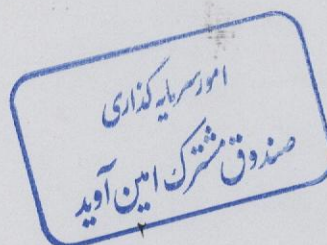 امور سرمایه گذاری
صندوق مشترک امین آوید
۲